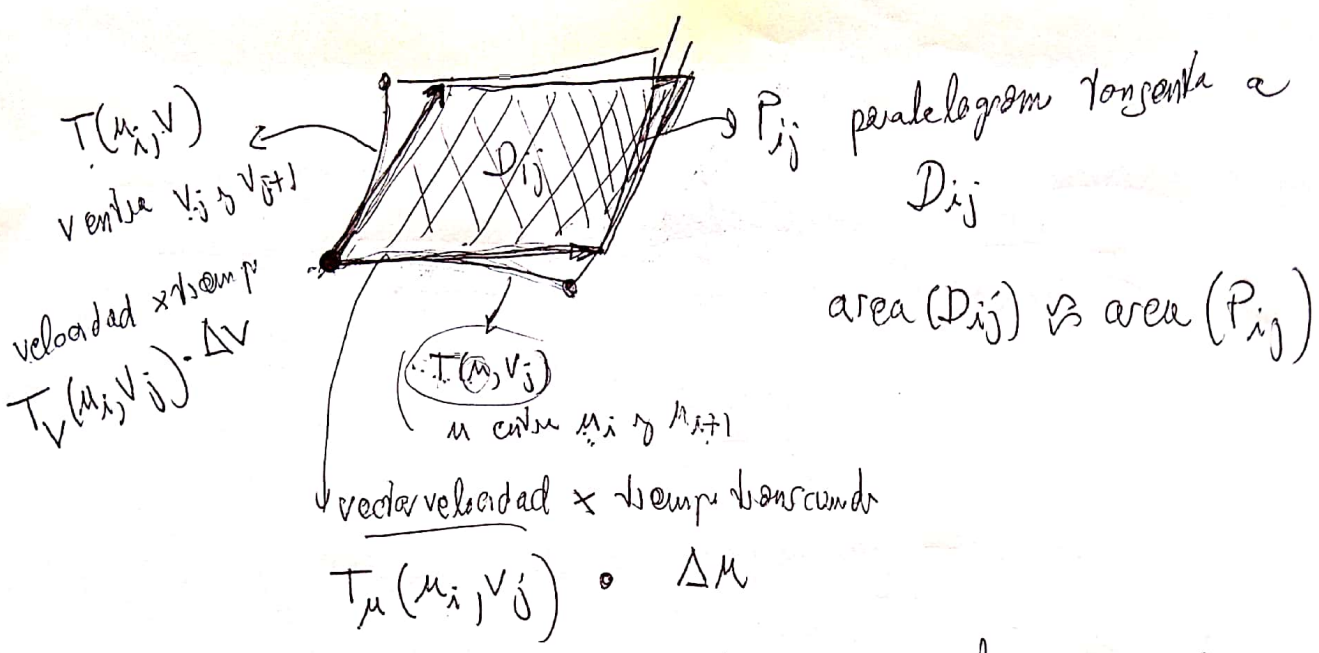 T(u_i, v)
v entre v_j y v_{j+1}
velocidad x tiemp
T_v(u_i, v_j) · Δv
D_ij
P_ij paralelogram tangente a
D_ij
area(D_ij) ≈ area(P_ij)
T(u, v_j)
u entre u_i y u_{i+1}
vector velocidad x tiemp transcurrido
T_u(u_i, v_j) · Δu